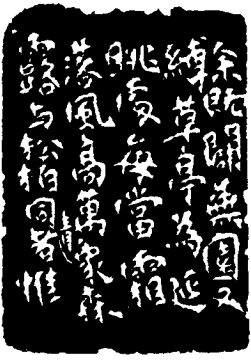 余既闢蕪園又
縛草亭為延
眺處每當霜
落風高萬象森
露与松柏同者惟